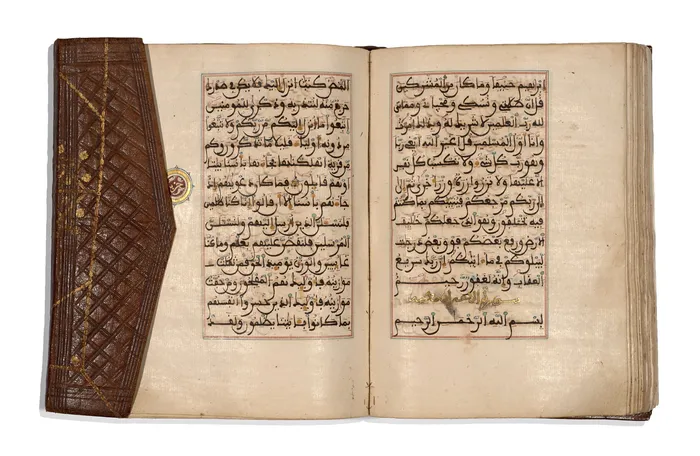 ابرهيم حنيفا وما كان من المشركين
قل ان صلاتي ونسكي ومحياي ومماتي
لله رب العلمين لا شريك له وبذلك امرت
وانا اول المسلمين قل اغير الله ابغي ربا
وهو رب كل شيء ولا تكسب كل نفس
الا عليها ولا تزر وازرة وزر اخرى ثم الى
ربكم مرجعكم فينبئكم بما كنتم
فيه تختلفون وهو الذي جعلكم خليف
الارض ورفع بعضكم فوق بعض درجت
ليبلوكم في ما اتيكم ان ربك سريع
العقاب وانه لغفور رحيم
بسم الله الرحمن الرحيم
المص كتب انزل اليك فلا يكن في صدرك
حرج منه لتنذر به وذكرى للمومنين
اتبعوا ما انزل اليكم من ربكم ولا تتبعوا
من دونه اولياء قليلا ما تذكرون وكم
من قرية اهلكنها فجاءها باسنا بيتا
او هم قايلون فما كان دعويهم اذ
جاءهم باسنا الا ان قالوا انا كنا ظلمين
فلنسئلن الذين ارسل اليهم ولنسئلن
المرسلين فلنقصن عليهم بعلم وما كنا
غايبين والوزن يوميذ الحق فمن ثقلت
موازينه فاوليك هم المفلحون ومن خفت
موازينه فاوليك الذين خسروا انفسهم
بما كانوا بايتنا يظلمون ولقد